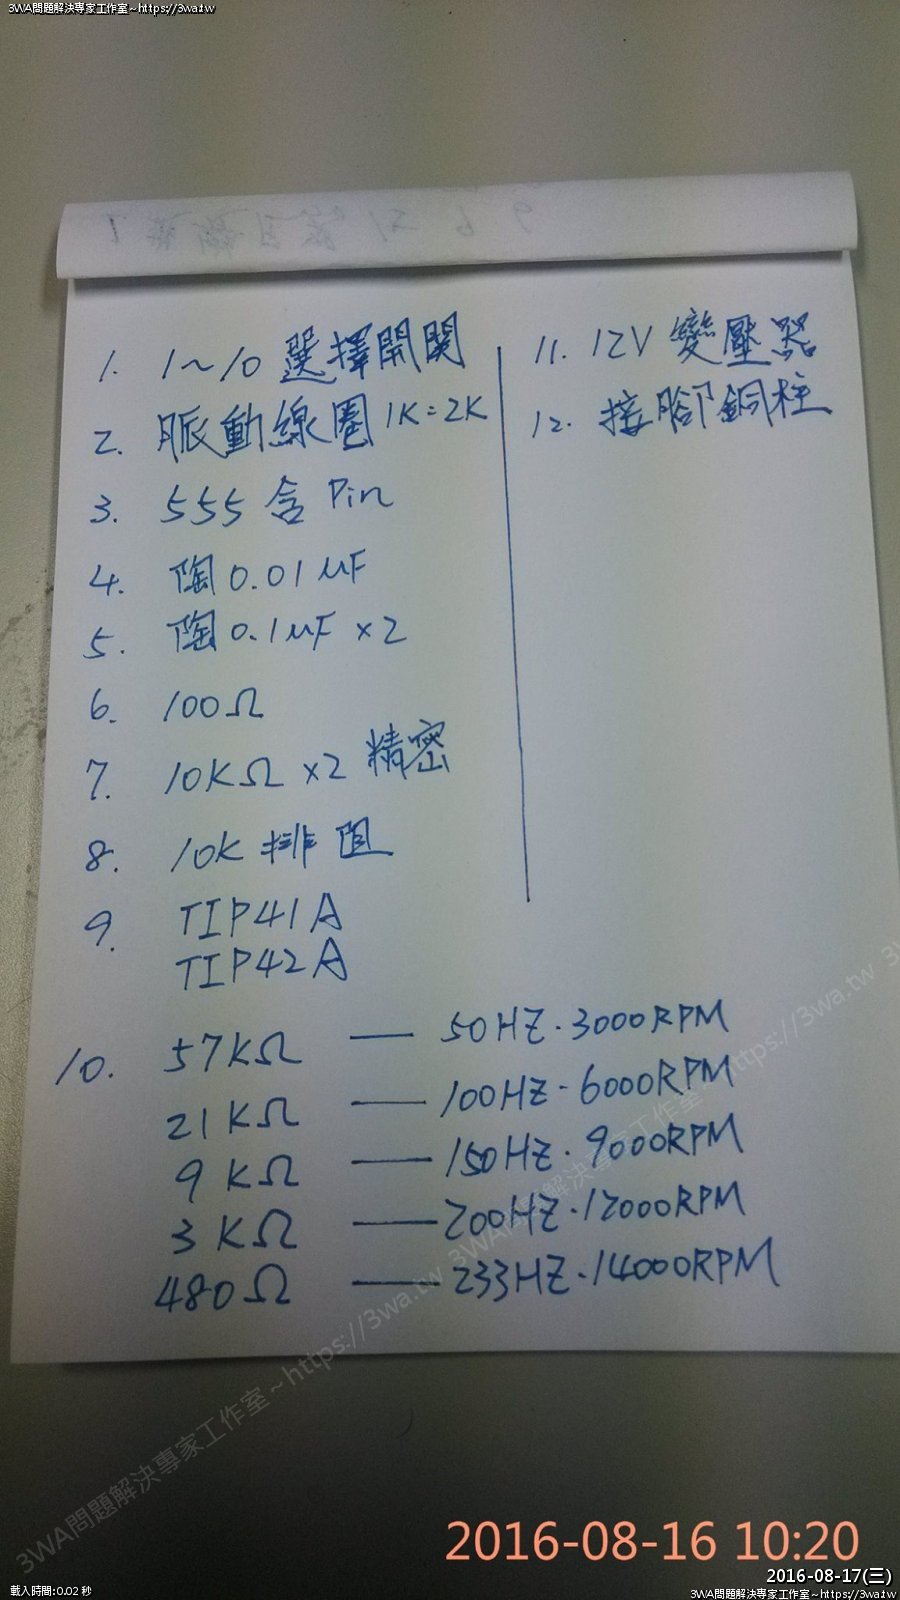 3WA問題解決專家工作室~https://3wa.tw
1. 1~10 選擇開關
2. 脈動線圈 1K=2K
3. 555 含 Pin
4. 陶 0.01 μF
5. 陶 0.1 μF ×2
6. 100Ω
7. 10KΩ ×2 精密
8. 10K 排阻
9. TIP41A
TIP42A
10. 57KΩ — 50HZ·3000RPM
21KΩ — 100HZ·6000RPM
9KΩ — 150HZ·9000RPM
3KΩ — 200HZ·12000RPM
480Ω — 233HZ·14000RPM
11. 12V 變壓器
12. 接腳銅柱
3WA問題解決專家工作室~https://3wa.tw 3WA問題解決專家工作室~https://3wa.tw 3
2016-08-16 10:20
2016-08-17(三)
載入時間:0.02 秒
3WA問題解決專家工作室~https://3wa.tw